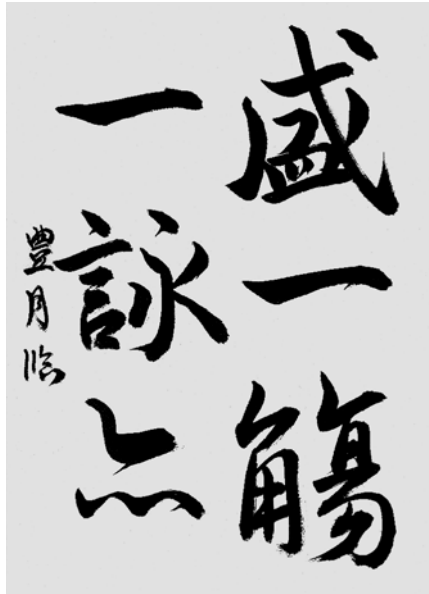 盛一觴
一詠亦
豊月臨